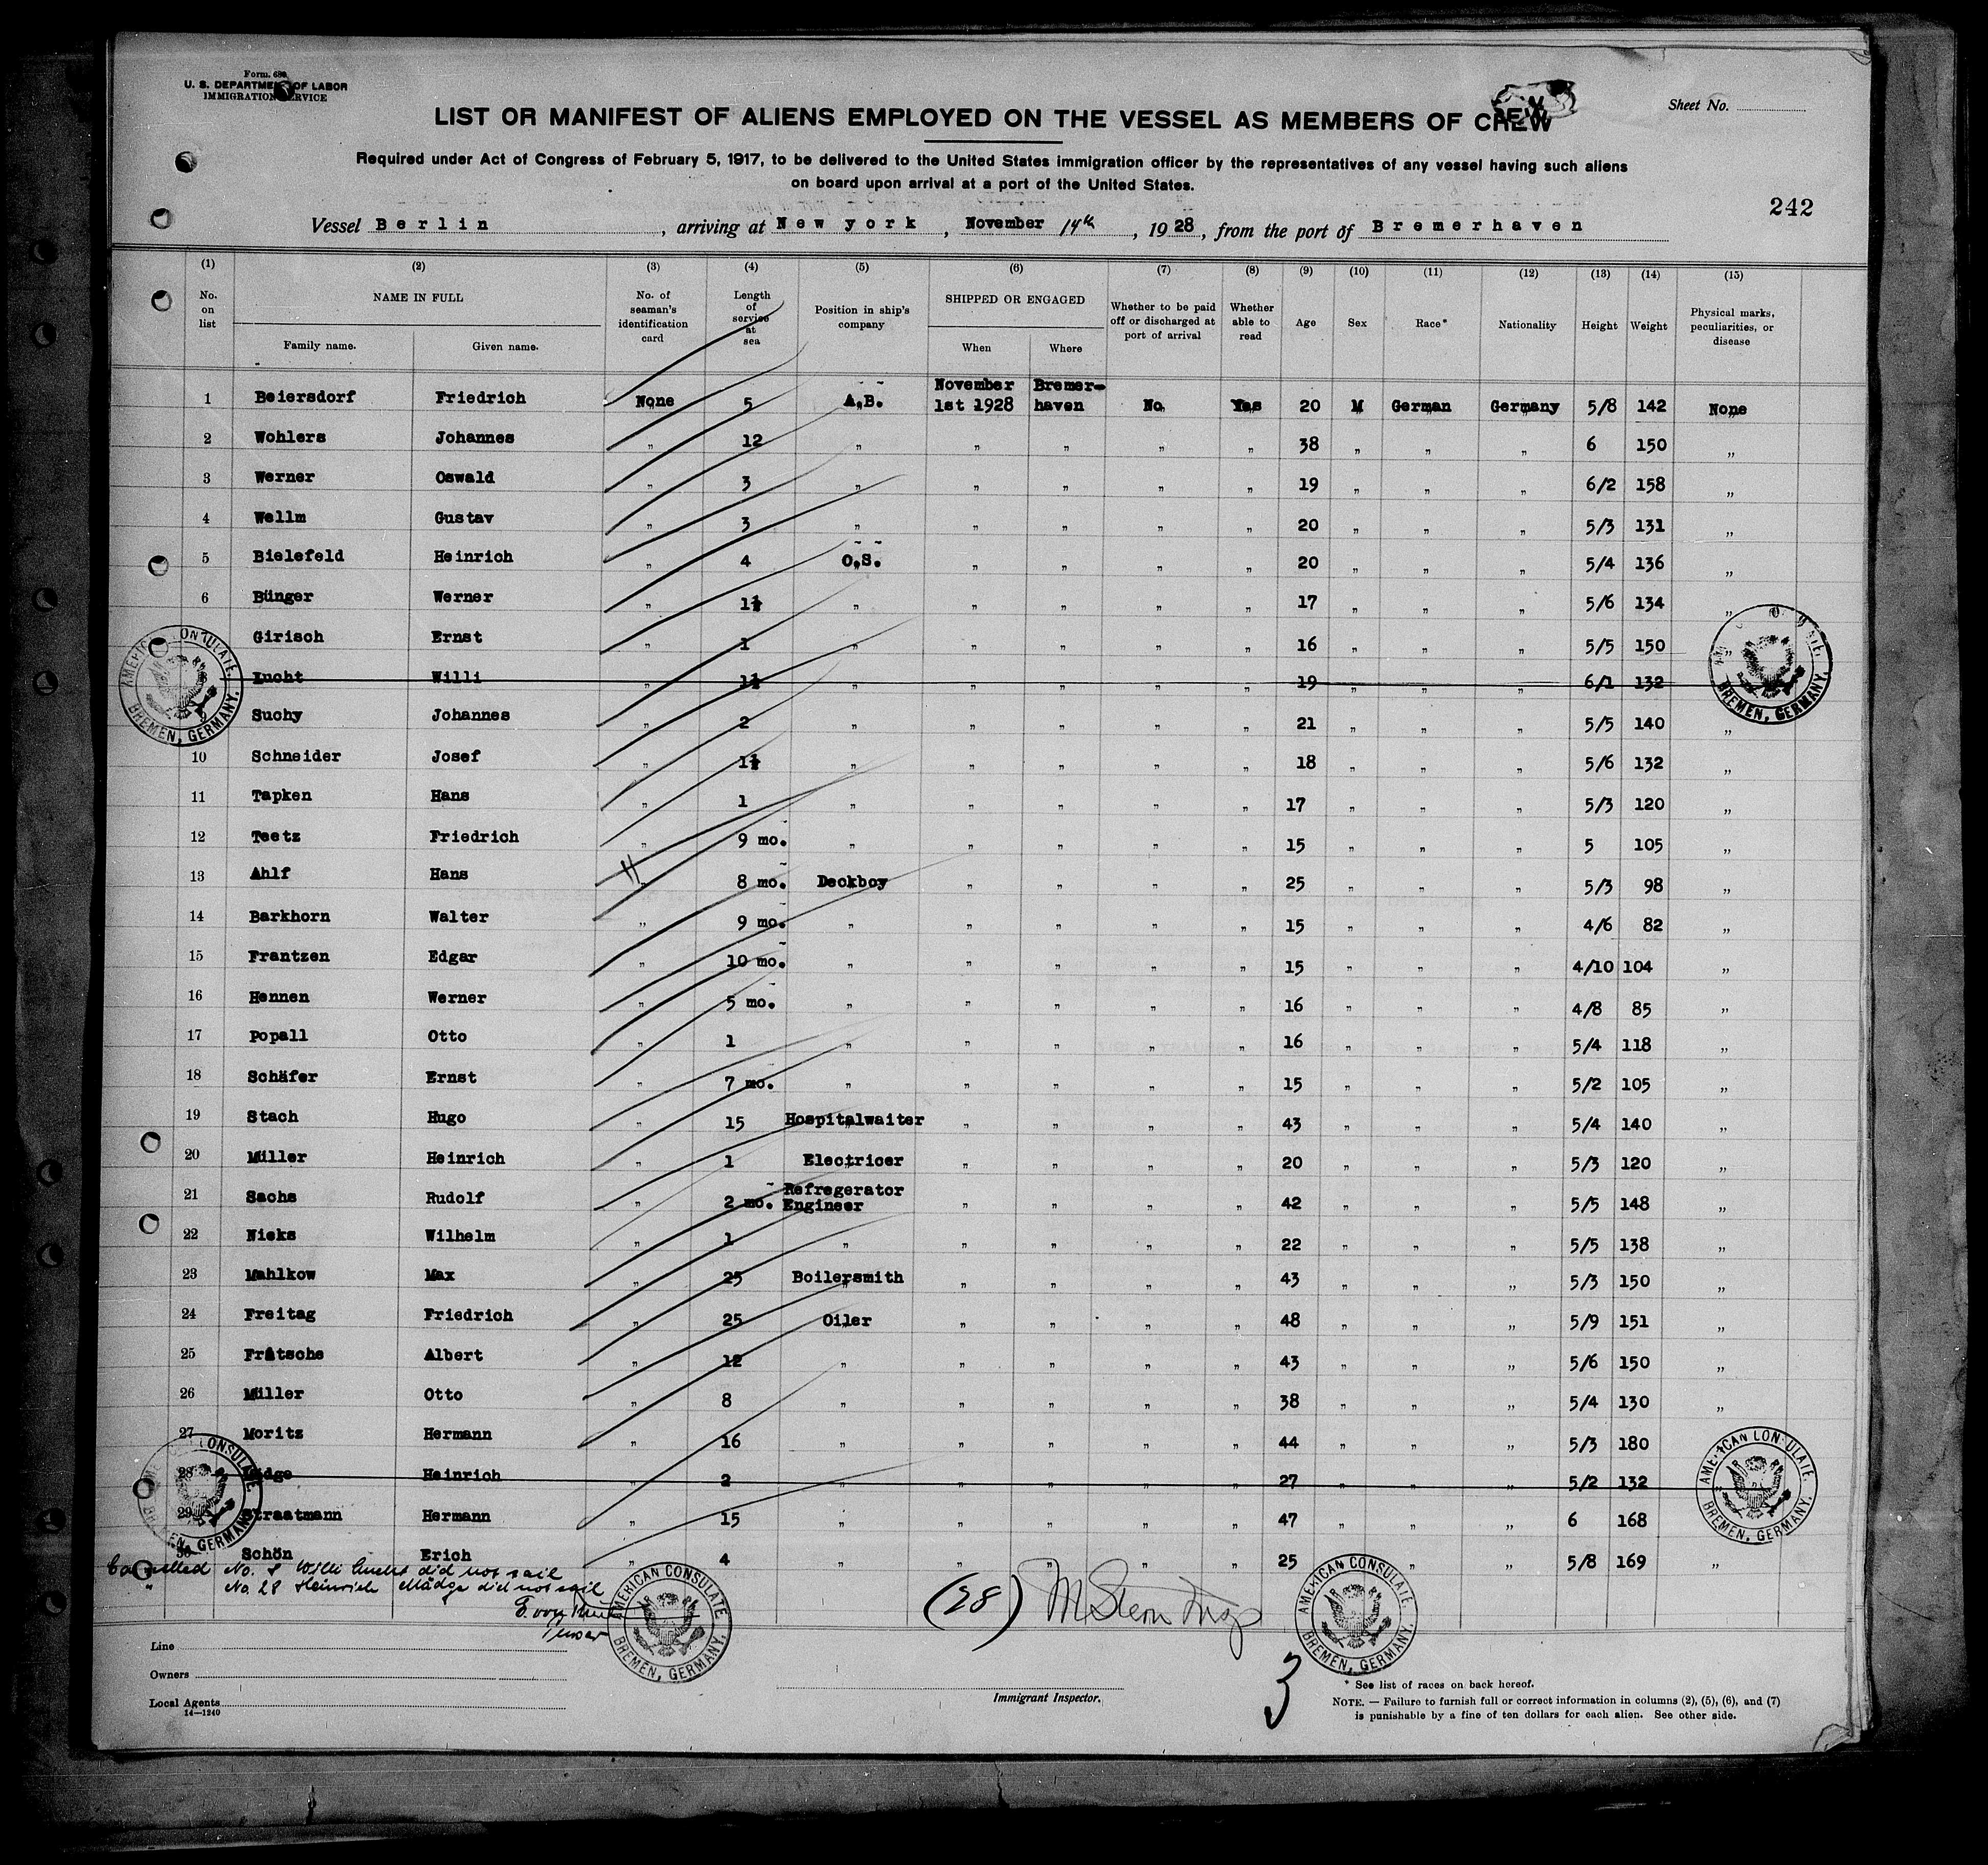 Form. 680
U. S. DEPARTMENT OF LABOR
IMMIGRATION SERVICE
LIST OR MANIFEST OF ALIENS EMPLOYED ON THE VESSEL AS MEMBERS OF CREW
Sheet No.
Required under Act of Congress of February 5, 1917, to be delivered to the United States immigration officer by the representatives of any vessel having such aliens
on board upon arrival at a port of the United States.
242
Vessel Berlin, arriving at New york, November 14th, 1928, from the port of Bremerhaven
(1) (2) (3) (4) (5) (6) (7) (8) (9) (10) (11) (12) (13) (14) (15)
No. on list NAME IN FULL Family name. Given name. No. of seaman's identification card Length of service at sea Position in ship's company SHIPPED OR ENGAGED When Where Whether to be paid off or discharged at port of arrival Whether able to read Age Sex Race* Nationality Height Weight Physical marks, peculiarities, or disease
1 Beiersdorf Friedrich None 5 A.B. November 1st 1928 Bremer-haven No Yes 20 M German Germany 5/8 142 None
2 Wohlers Johannes " 12 " " " " " 38 " " " 6 150 "
3 Werner Oswald " 3 " " " " " 19 " " " 6/2 158 "
4 Wellm Gustav " 3 " " " " " 20 " " " 5/3 131 "
5 Bielefeld Heinrich " 4 O.S. " " " " 20 " " " 5/4 136 "
6 Bünger Werner " 1½ " " " " " 17 " " " 5/6 134 "
Girisch Ernst " 1 " " " " " 16 " " " 5/5 150 "
Lucht Willi " 1½ " " " " " 19 " " " 6/1 132
9 Suchy Johannes 2 " " " " " 21 " " " 5/5 140 "
10 Schneider Josef " 1½ " " " " " 18 " " " 5/6 132 "
11 Tapken Hans " 1 " " " " " 17 " " " 5/3 120 "
12 Teetz Friedrich " 9 mo. " " " " " 15 " " " 5 105 "
13 Ahlf Hans " 8 mo. Deckboy " " " " 25 " " " 5/3 98 "
14 Barkhorn Walter " 9 mo. " " " " " 15 " " " 4/6 82 "
15 Frantzen Edgar " 10 mo. " " " " " 15 " " " 4/10 104 "
16 Hennen Werner " 5 mo. " " " " " 16 " " " 4/8 85 "
17 Popall Otto " 1 " " " " " 16 " " " 5/4 118 "
18 Schäfer Ernst " 7 mo. " " " " " 15 " " " 5/2 105 "
19 Stach Hugo " 15 Hospitalwaiter " " " " 43 " " " 5/4 140 "
20 Müller Heinrich " 1 Electricer " " " " 20 " " " 5/3 120 "
21 Sachs Rudolf " 2 mo. Refregerator Engineer " " " " 42 " " " 5/5 148 "
22 Nieks Wilhelm " 1 " " " " " 22 " " " 5/5 138 "
23 Mahlkow Max " 25 Boilersmith " " " " 43 " " " 5/3 150 "
24 Freitag Friedrich " 25 Oiler " " " " 48 " " " 5/9 151 "
25 Fritsche Albert " 12 " " " " " 43 " " " 5/6 150 "
26 Müller Otto " 8 " " " " " 38 " " " 5/4 130 "
27 Moritz Hermann " 16 " " " " " 44 " " " 5/3 180
28 Mädge Heinrich 2 " " " " " 27 " " " 5/2 132
29 Straatmann Hermann " 15 " " " " " 47 " " " 6 168
30 Schön Erich " 4 " " " " " 25 " " " 5/8 169 "
Cancelled No. 8 Willi Lucht did not sail
" No. 28 Heinrich Mädge did not sail
(28) M Stern Insp
3
AMERICAN CONSULATE. BREMEN, GERMANY.
AMERICAN CONSULATE. BREMEN, GERMANY.
AMERICAN CONSULATE. BREMEN, GERMANY.
AMERICAN CONSULATE. BREMEN, GERMANY.
AMERICAN CONSULATE. BREMEN, GERMANY.
AMERICAN CONSULATE. BREMEN, GERMANY.
Line
Owners
Local Agents
14—1240
Immigrant Inspector.
* See list of races on back hereof.
NOTE. — Failure to furnish full or correct information in columns (2), (5), (6), and (7)
is punishable by a fine of ten dollars for each alien. See other side.